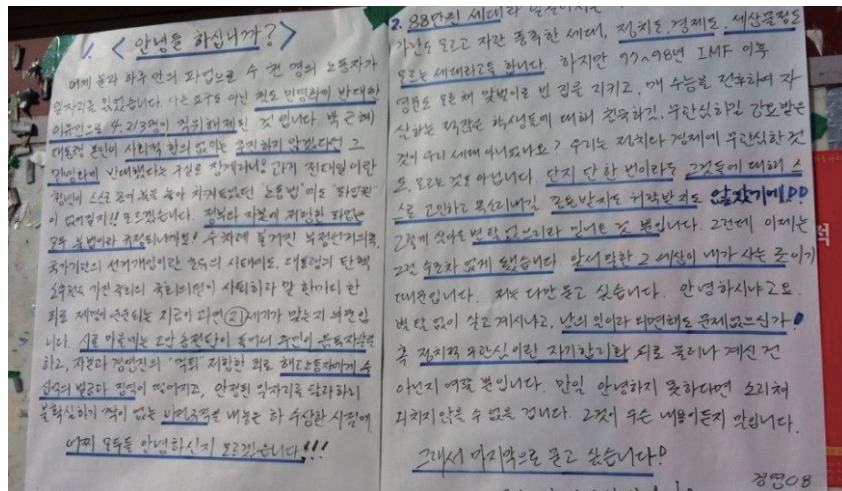 1. <안녕들 하십니까?>
어제 불과 하루 만의 파업으로 수 천 명의 노동자가
일자리를 잃었습니다. 다른 요구도 아닌 철도 민영화에 반대한
이유만으로 4,213명이 직위해제된 것입니다. 박근혜
대통령 본인이 사회적 합의 없이는 추진하지 않겠다던 그
민영화에 반대했다는 구실로 징계라니! 과거 전태일이란
청년이 스스로 몸에 불을 놓아 치켜들었던 "노동법"에도 "파업권"
이 없어질지!! 모르겠습니다. 정부와 자본에 저항한 파업은
모두 불법이라 규정되니까요! 수차례 불거진 부정선거의혹,
국가기관의 선거개입이란 초유의 사태에도, 대통령의 탄핵
소추권을 가진 국회의 국회의원이 사퇴하라 말 한마디 한
죄로 제명이 운운되는 지금이 과연 21세기가 맞는지 의문입
니다. 시골 마을에는 고압 송전탑이 들어서 주민이 음독자살을
하고, 자본과 경영진의 "먹튀"에 저항한 죄로 해고노동자에게 수
십억의 벌금과 징역이 떨어지고, 안정된 일자리를 달라하니
불확실하기 짝이 없는 비정규직을 내놓은 하 수상한 시절에
어찌 모두들 안녕하신지 모르겠습니다!!!
2. 88만원 세대라
가난도 모르고 자란 풍족한 세대, 정치도, 경제도, 세상물정도
모르는 세대라고들 합니다. 하지만 97~98년 IMF 이후
영문도 모른 채 맞벌이로 빈 집을 지키고, 매 수능을 전후하여 자
살하는 적잖은 학생들에 대해 침묵하길, 무관심하길 강요받은
것이 우리 세대 아니었나요? 우리는 정치와 경제에 무관심한 것
도, 모르는 것도 아닙니다. 단지 단 한 번이라도 그것들에 대해 스
스로 고민하고 목소리내길 종용받지도 허락받지도 않았기에!!
그렇게 살아도 별 탈 없으리라 믿어온 것 뿐입니다. 그런데 이제는
그럴 수조차 없게 됐습니다. 앞서 말한 그 세상이 내가 사는 곳이기
때문입니다. 저는 다만 묻고 싶습니다. 안녕하시냐고요.
별 탈 없이 살고 계시냐고, 남의 일이라 외면해도 문제없으신가!
혹 정치적 무관심이란 자기합리화 뒤로 물러나 계신 건
아닌지 여쭐 뿐입니다. 만일 안녕하지 못하다면 소리쳐
외치지 않을 수 없을 겁니다. 그것이 무슨 내용이든지 말입니다.
그래서 마지막으로 묻고 싶습니다!
경영08
적